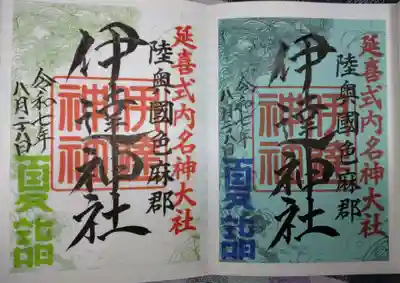 延喜式内名神大社
陸奥國色麻郡
伊達神社
令和七年
八月二八日
夏詣
延喜式内名神大社
陸奥國色麻郡
伊達神社
令和七年
八月二八日
夏詣